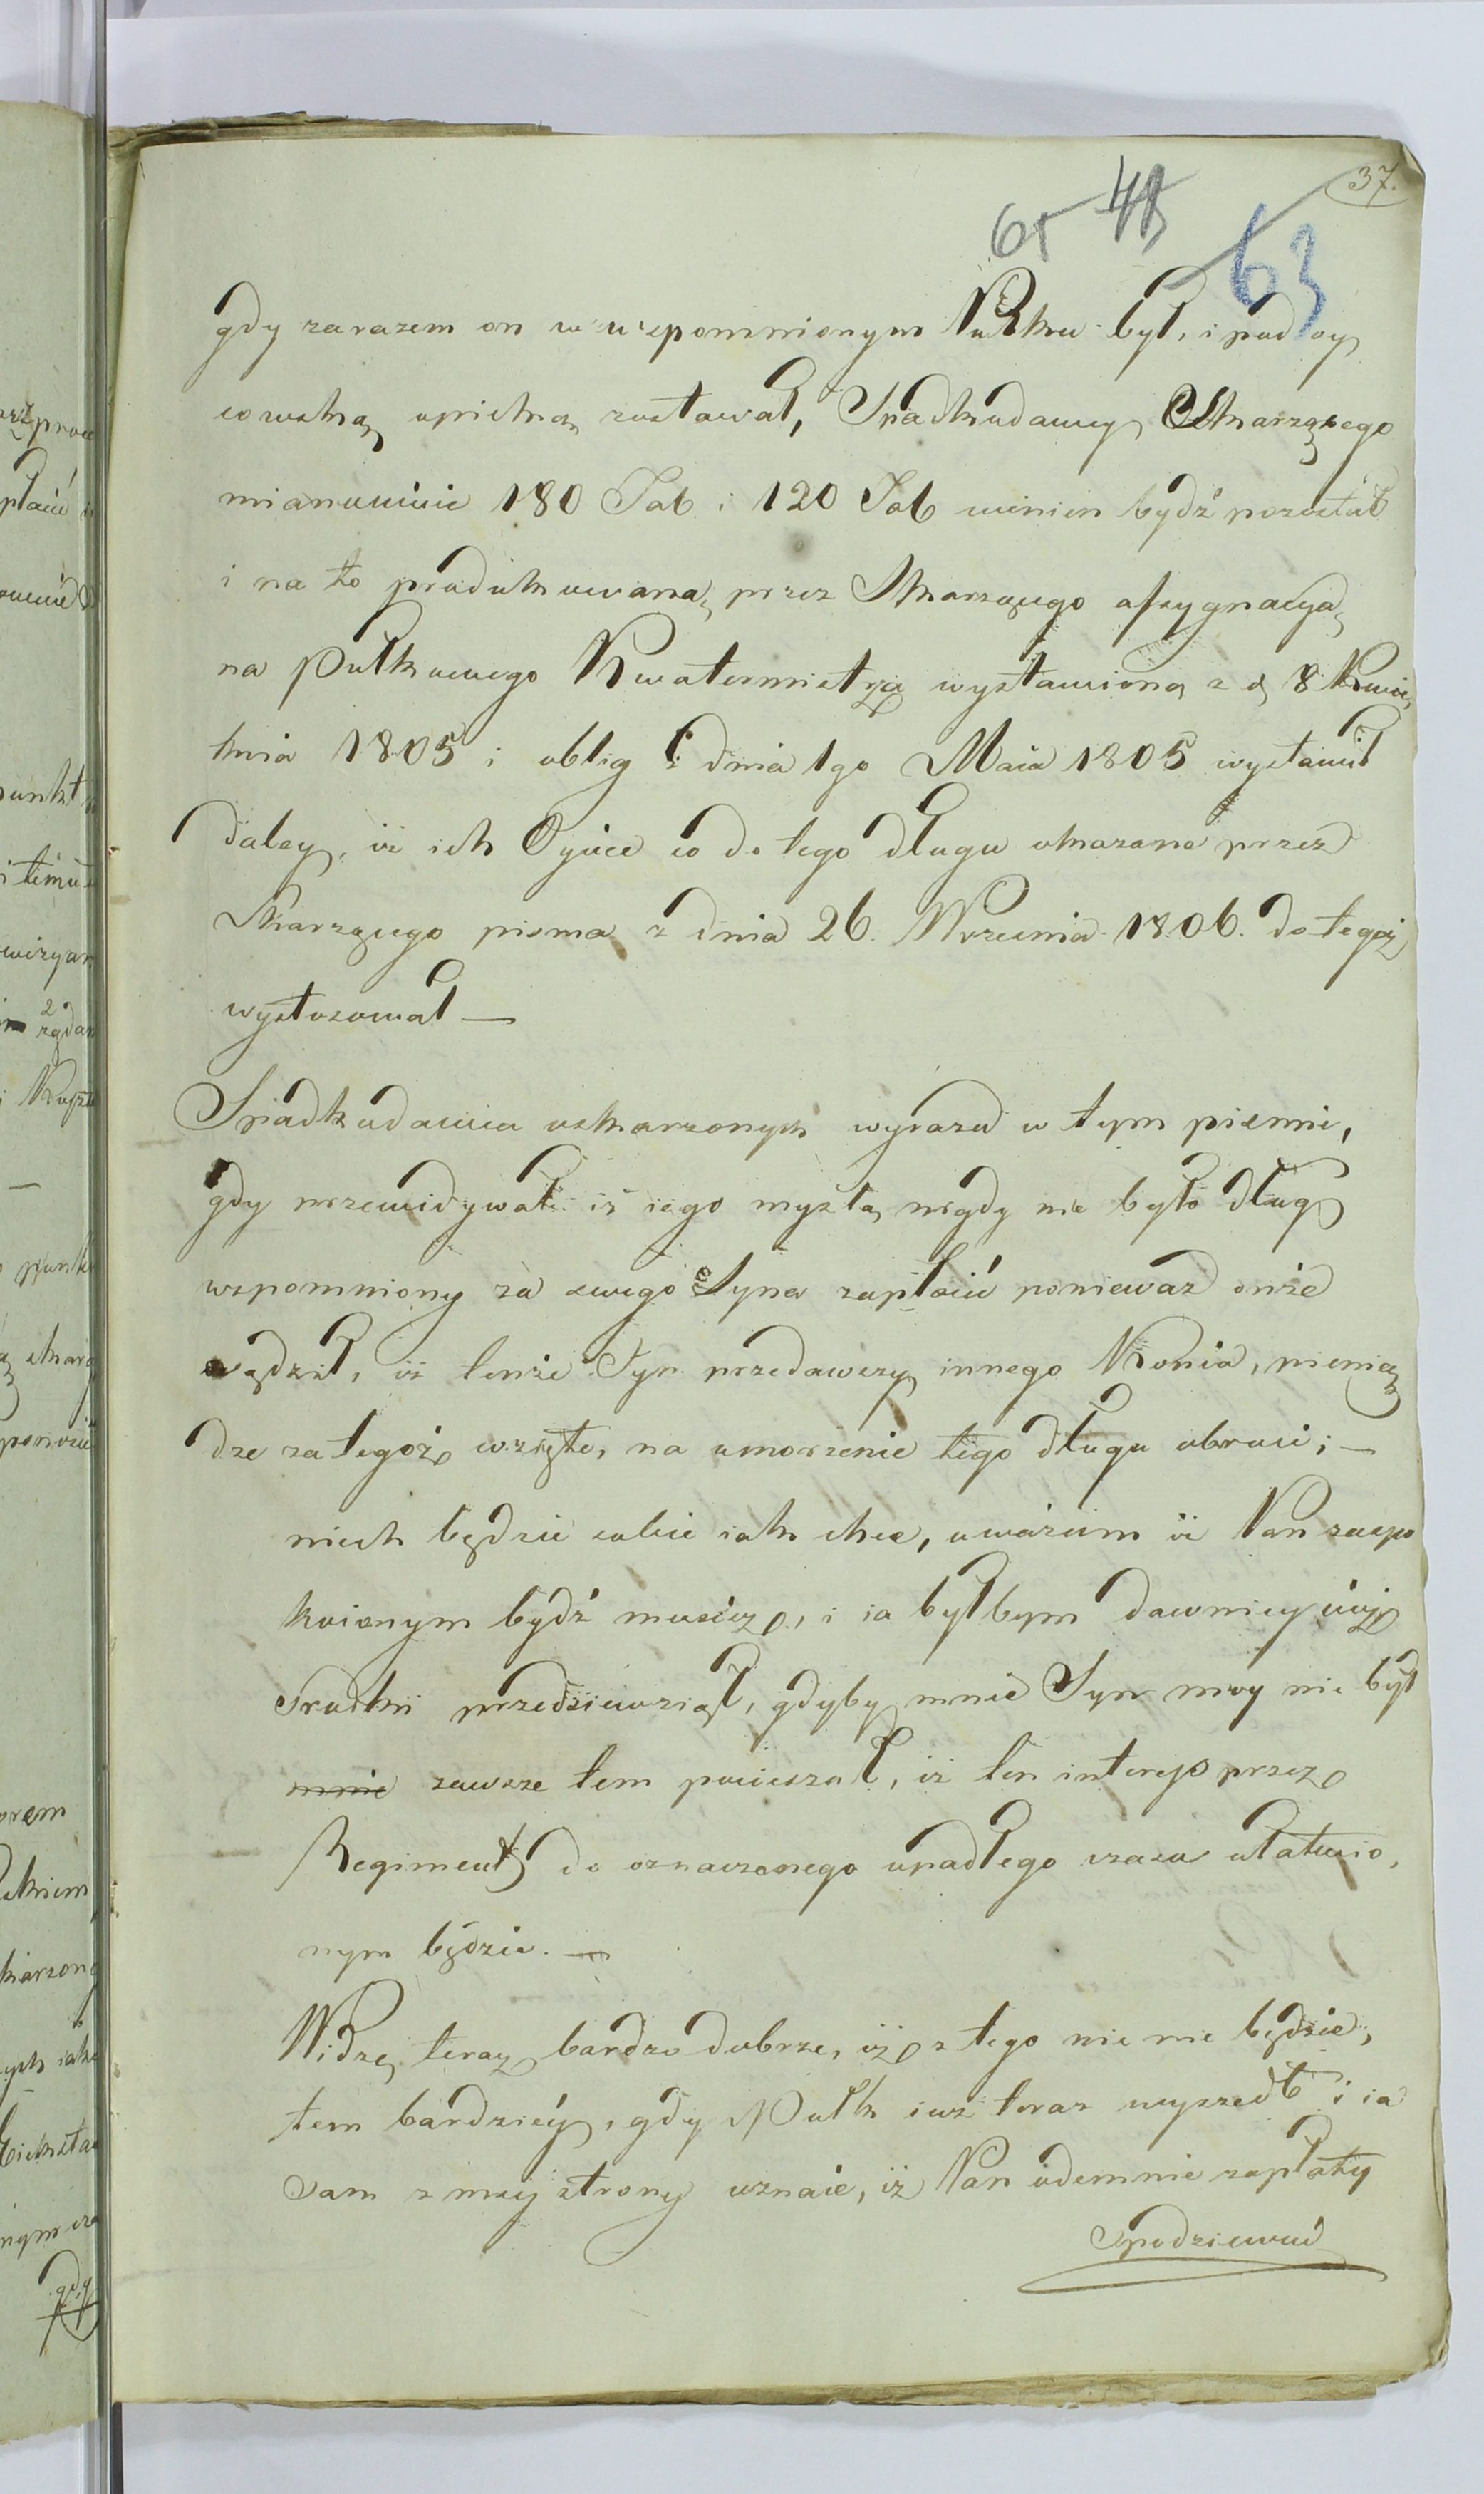 37.
65 48
63
gdy zarazem on w wspomnionym Pułku był, i pod oy
cowską opieką zostawał, Spadkodawcy Skarzącego
mianowicie 180 Tal. i 120 Tal winien bydź pozostał
i na to produkowaną przez Skarzącego assygnacyą
na Pułkowego Kwatermistrza wystawioną z d. 8 Kwie
tnia 1805 i oblig z dnia 1go Maia 1805 wystawił
daley, iż ich Oyciec co do tego długu okazane przez
Skarzącego pismo z dnia 26. Września 1806. do tegoż
wystosował —
Spadkodawca oskarzonych wyraża w tym piśmie,
gdy przewidywał iż iego myslą nigdy nie było dług
wspomniony za swego Syna zapłacić ponieważ onże
sądził, iż tenże Syn przedawszy innego Konia, pienią
dze za tegoż wzięte, na umorzenie tego długu obroci; —
niech będzie sobie iak chce, uważam iż Pan zaspo
koionym bydź musisz, i ia byłbym dawniey iuż
Srodki przedsiewziął, gdyby mnie Syn moy nie był
mnie zawsze tem pocieszał, iż ten interes przez
Regiment do oznaczonego upadłego czasu ułatwio,
nym będzie. —
Widzę teraz bardzo dobrze, iż z tego nic nie będzie,
tem bardziey, gdy Pułk iuż teraz wyszedł i ia
sam z mey strony uznaię, iż Pan odemnie zapłaty
spodziewać